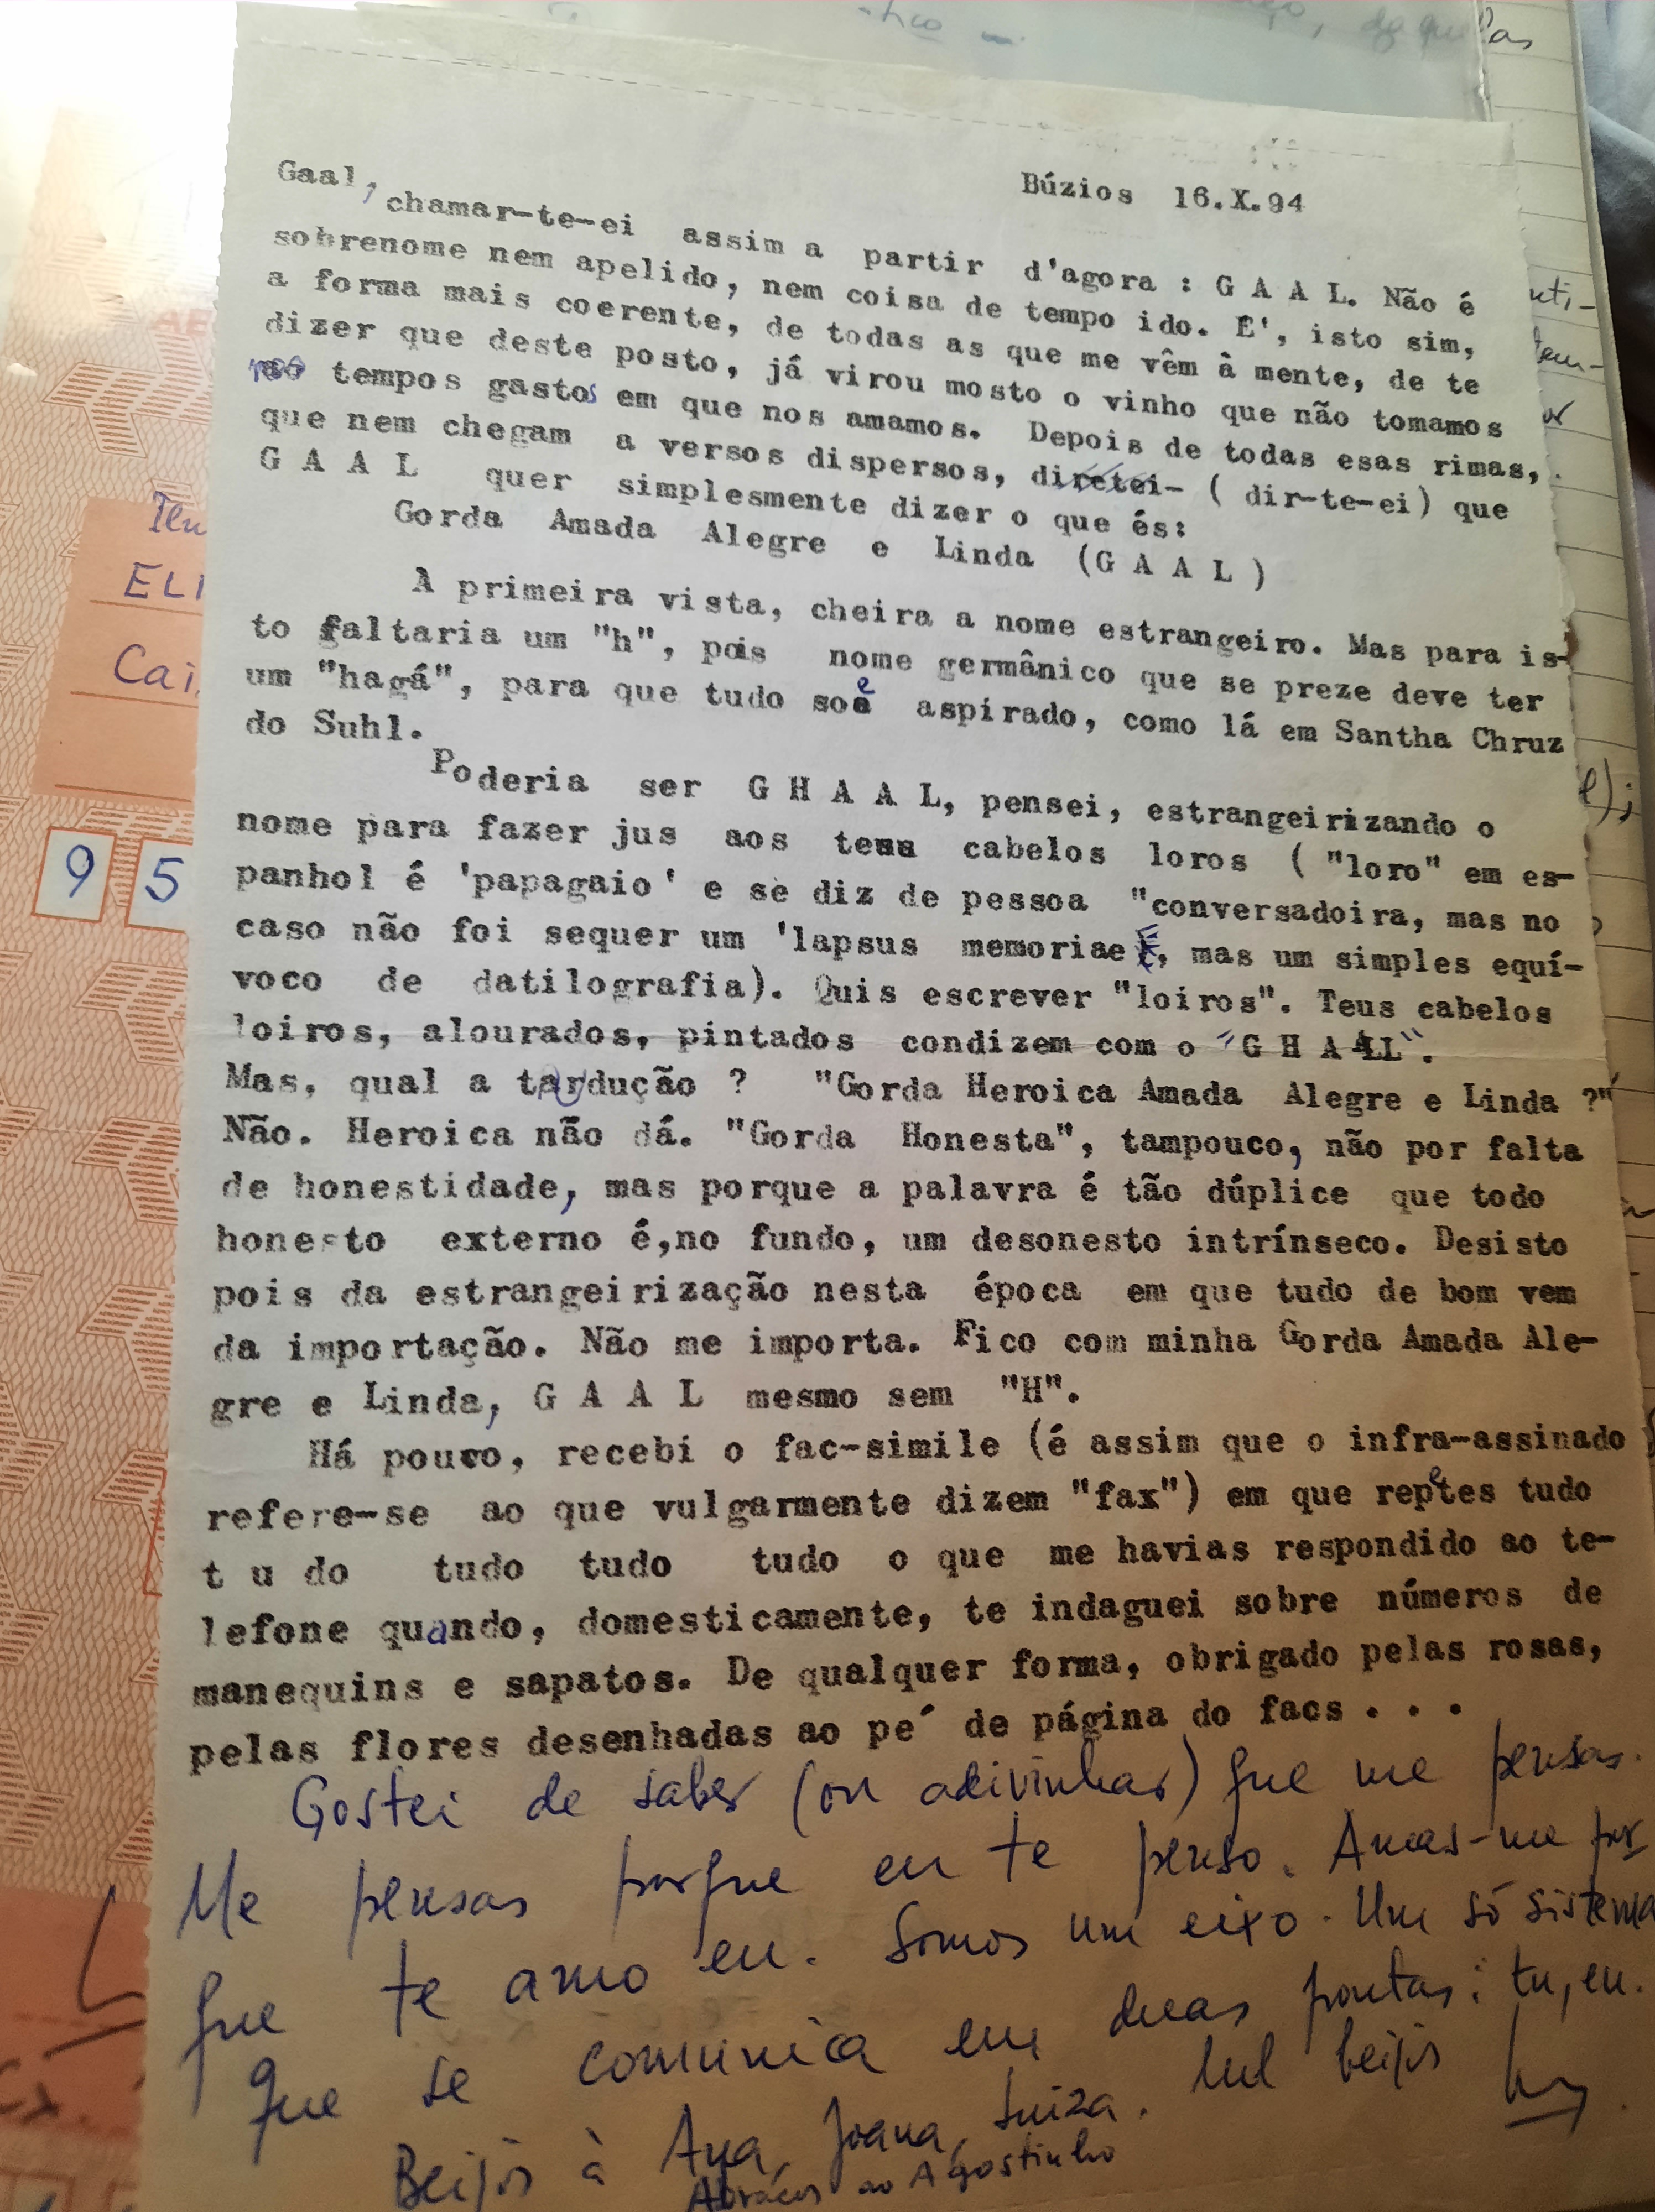 Búzios 16.X.94
Gaal,
chamar-te-ei assim a partir d'agora : G A A L. Não é
sobrenome nem apelido, nem coisa de tempo ido. E', isto sim,
a forma mais coerente, de todas as que me vêm â mente, de te
dizer que deste posto, já virou mosto o vinho que não tomamos
nos tempos gastos em que nos amamos. Depois de todas esas rimas,
que nem chegam a versos dispersos, diretei- ( dir-te-ei) que
G A A L quer simplesmente dizer o que és:
Gorda Amada Alegre e Linda (G A A L )
A primeira vista, cheira a nome estrangeiro. Mas para is-
to faltaria um "h", pois nome germânico que se preze deve ter
um "hagá", para que tudo soe aspirado, como lá em Santha Chruz
do Suhl.
Poderia ser G H A A L, pensei, estrangeirizando o
nome para fazer jus aos teus cabelos loros ( "loro" em es-
panhol é 'papagaio' e se diz de pessoa "conversadoira, mas no
caso não foi sequer um 'lapsus memoriae, mas um simples equí-
voco de datilografia). Quis escrever "loiros". Teus cabelos
loiros, alourados, pintados condizem com o "G H A A L".
Mas, qual a tardução ? "Gorda Heroica Amada Alegre e Linda ?"
Não. Heroica não dá. "Gorda Honesta", tampouco, não por falta
de honestidade, mas porque a palavra é tão dúplice que todo
honesto externo é,no fundo, um desonesto intrínseco. Desisto
pois da estrangeirização nesta época em que tudo de bom vem
da importação. Não me importa. Fico com minha Gorda Amada Ale-
gre e Linda, G A A L mesmo sem "H".
Há pouco, recebi o fac-simile (é assim que o infra-assinado
refere-se ao que vulgarmente dizem "fax") em que repetes tudo
t u do tudo tudo tudo o que me havias respondido ao te-
lefone quando, domesticamente, te indaguei sobre números de
manequins e sapatos. De qualquer forma, obrigado pelas rosas,
pelas flores desenhadas ao pe´ de página do facs . . .
Gostei de saber (ou adivinhar) que me pensas.
Me pensas porque eu te penso. Amas-me por
que te amo eu. Somos um eixo. Um só sistema
que se comunica em duas pontas: tu, eu.
Mil beijos
Beijos à Ana, Joana, Luiza.
Abraços ao Agostinho
ELI
Cai
9 5